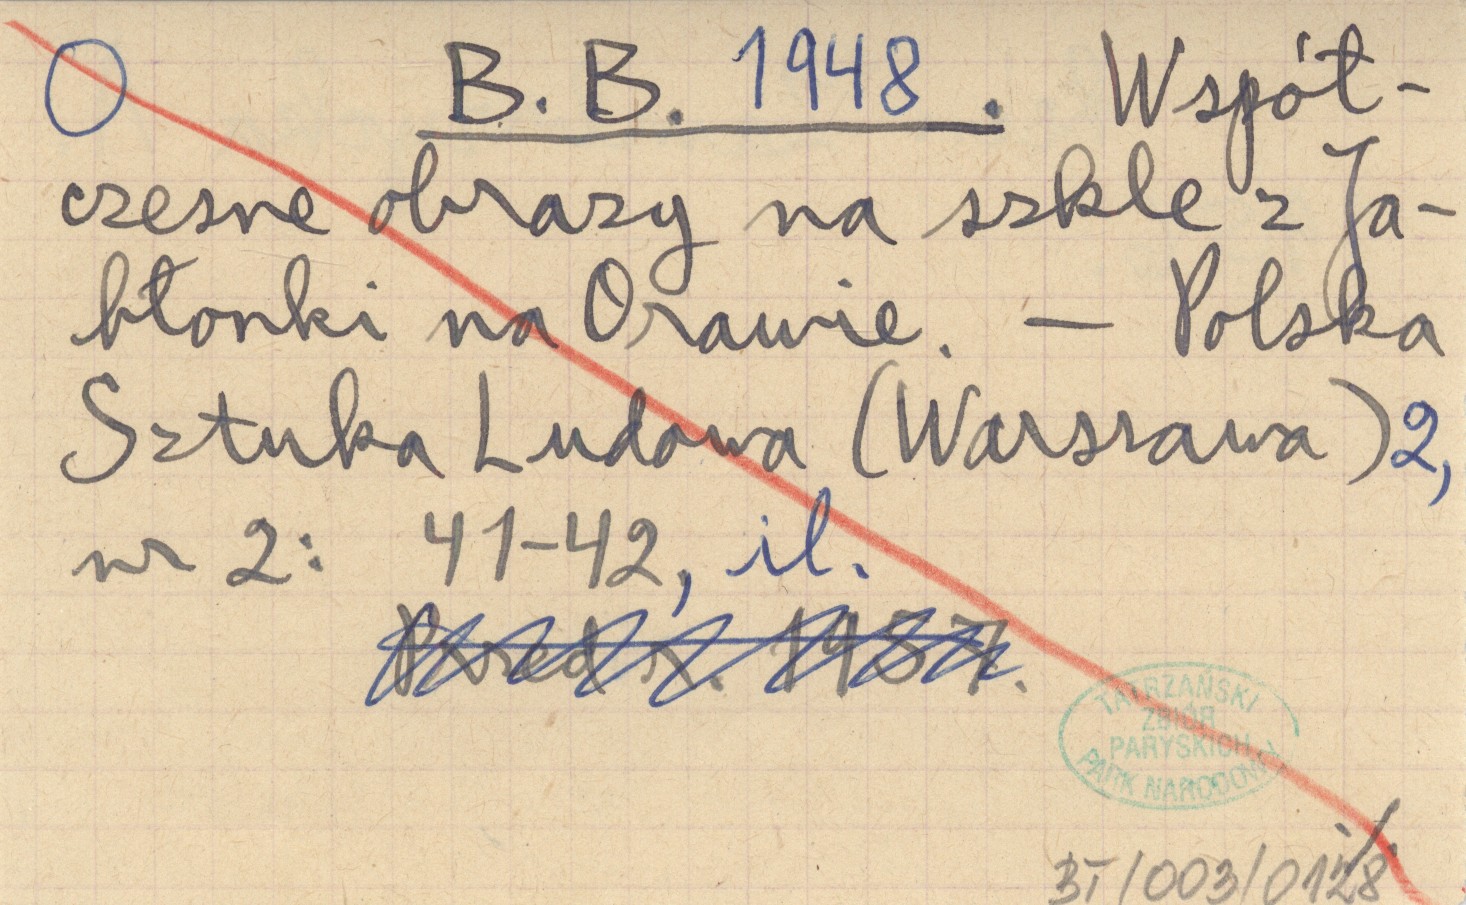 O B. B. 1948. Współ-
czesne obrazy na szkle z Ja-
błonki na Orawie. — Polska
Sztuka Ludowa (Warszawa) 2,
nr 2: 41-42, il.
TATRZAŃSKI
ZBIÓR
PARYSKICH
PARK NARODOWY
BT/003/0128